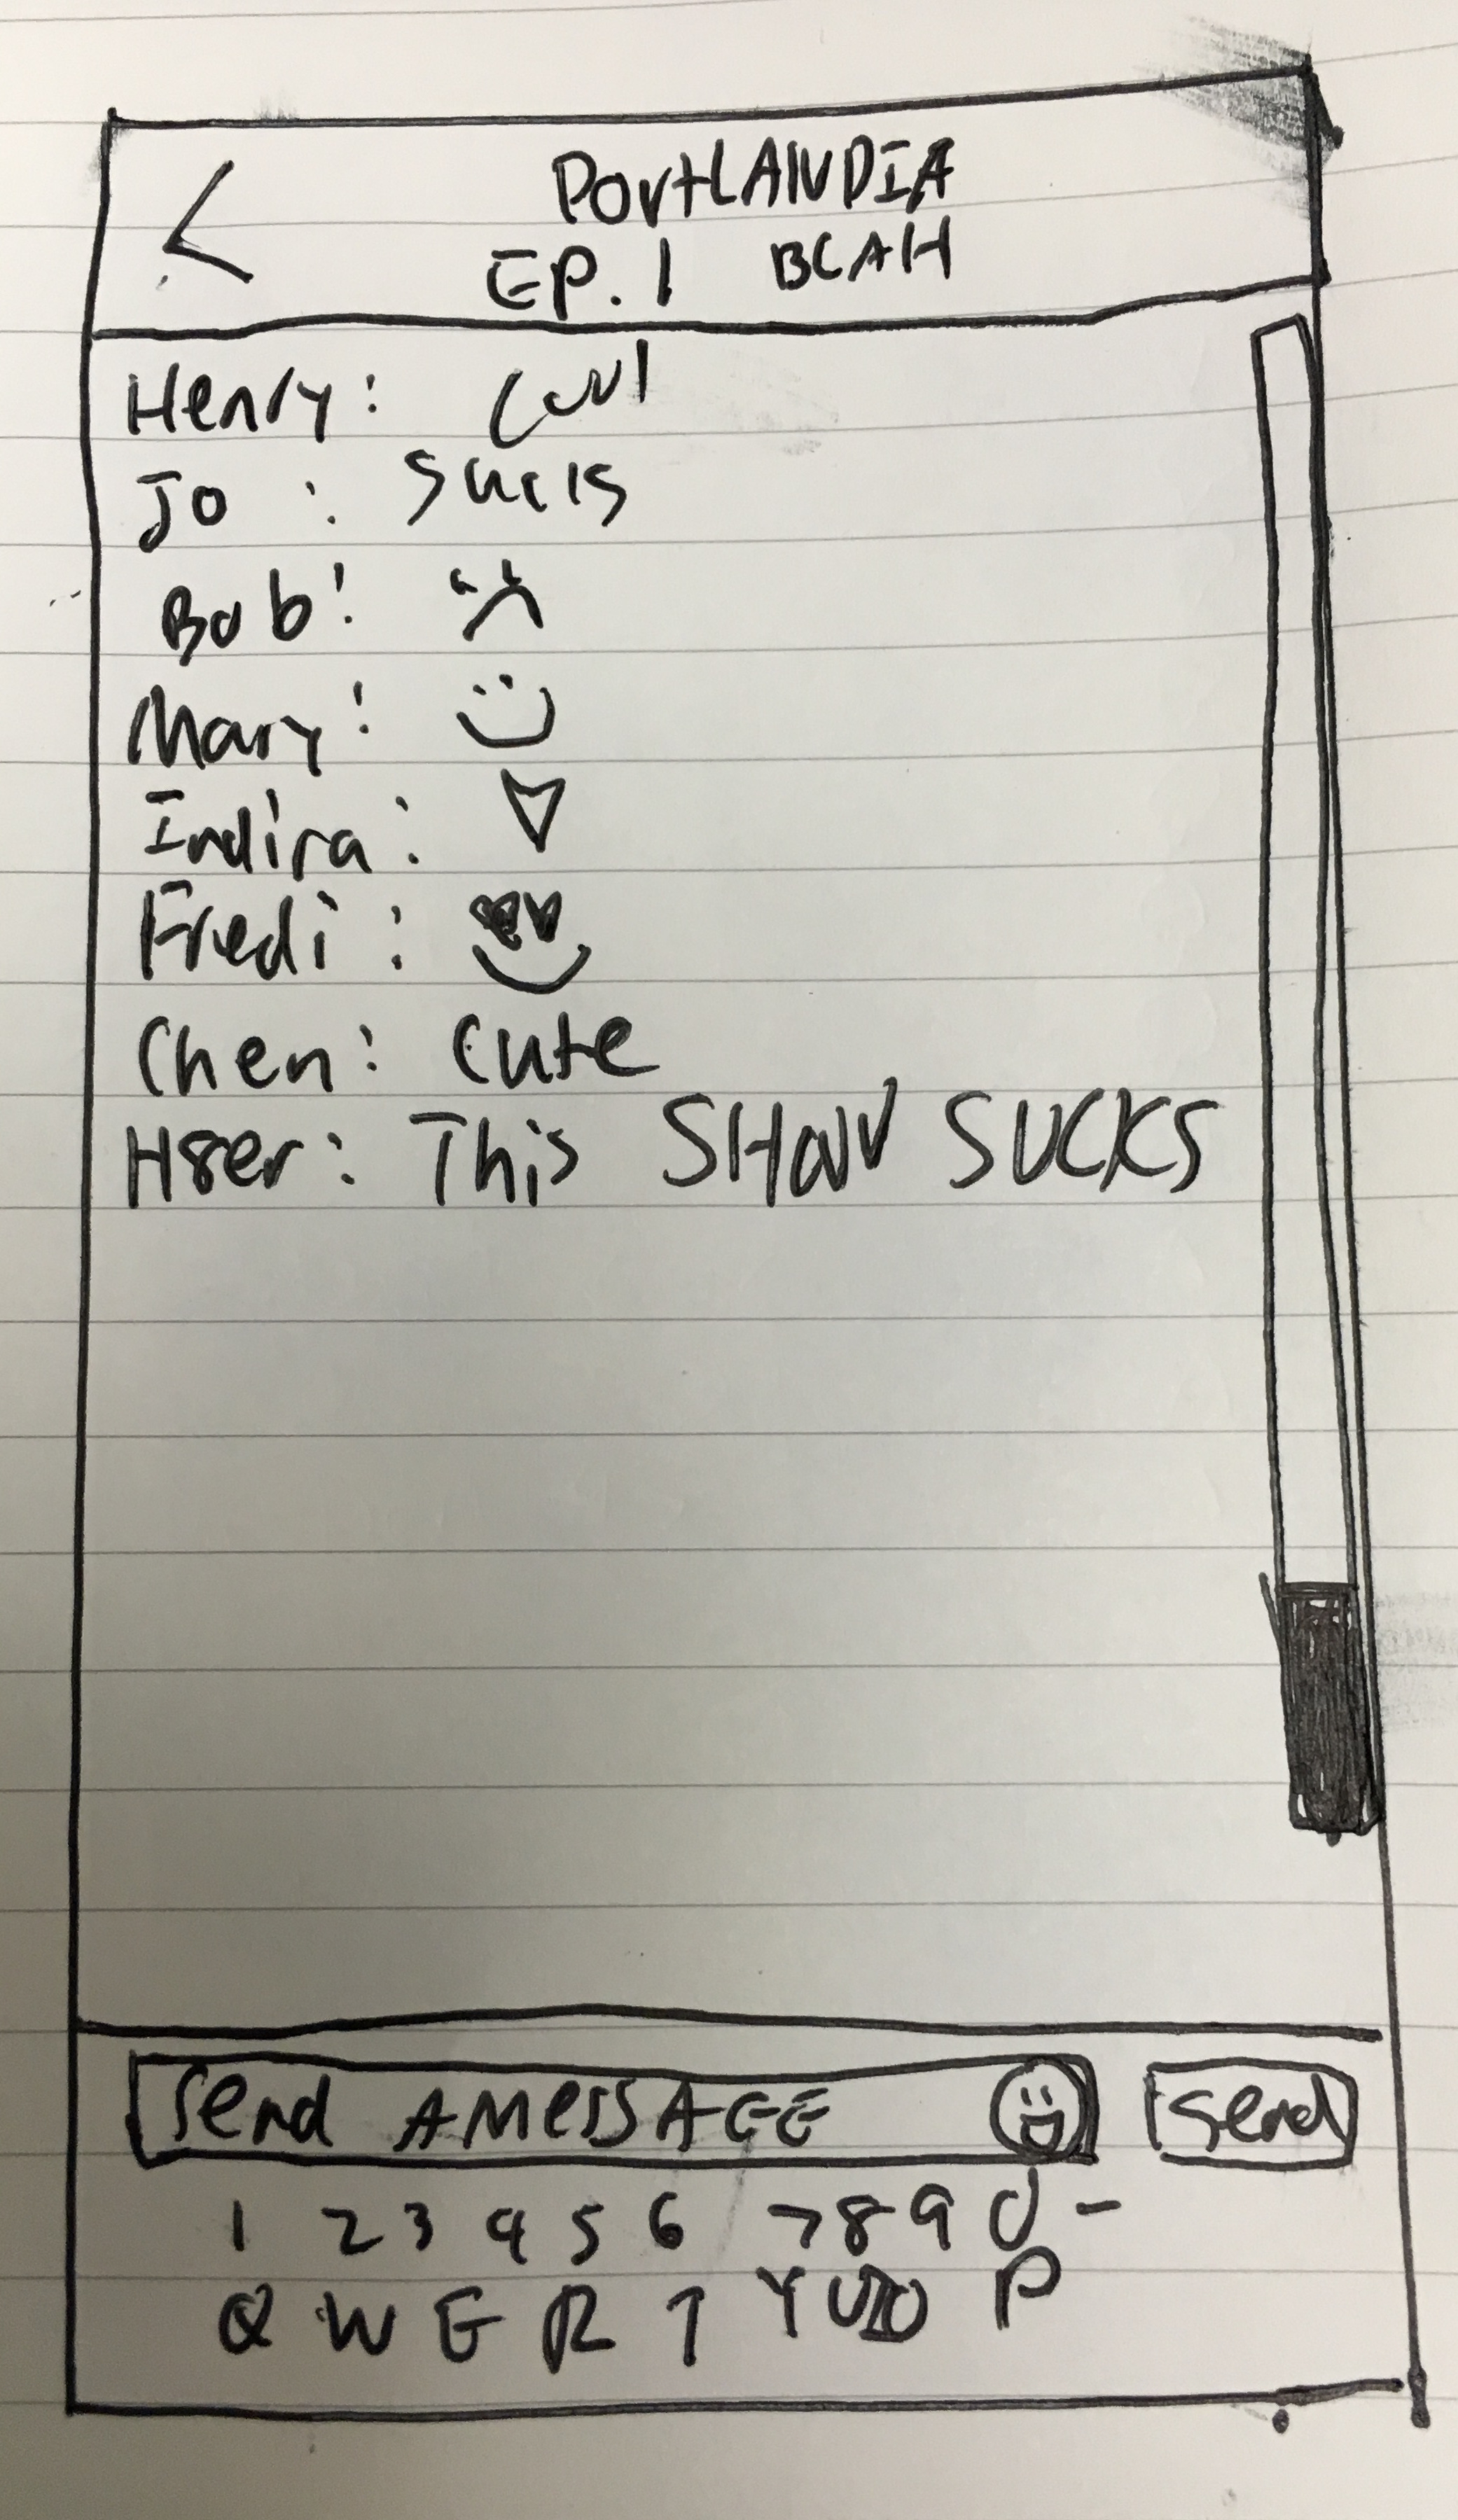 <
PORTLANDIA
EP. 1 BLAH
Henry: Cool
Jo : Sucks
Bob: :(
Mary: :)
Indira: ♡
Fredi: 😍
Chen: cute
H8er: This SHOW SUCKS
Send A MESSAGE Send
1 2 3 4 5 6 7 8 9 0 -
Q W E R T Y U I O P